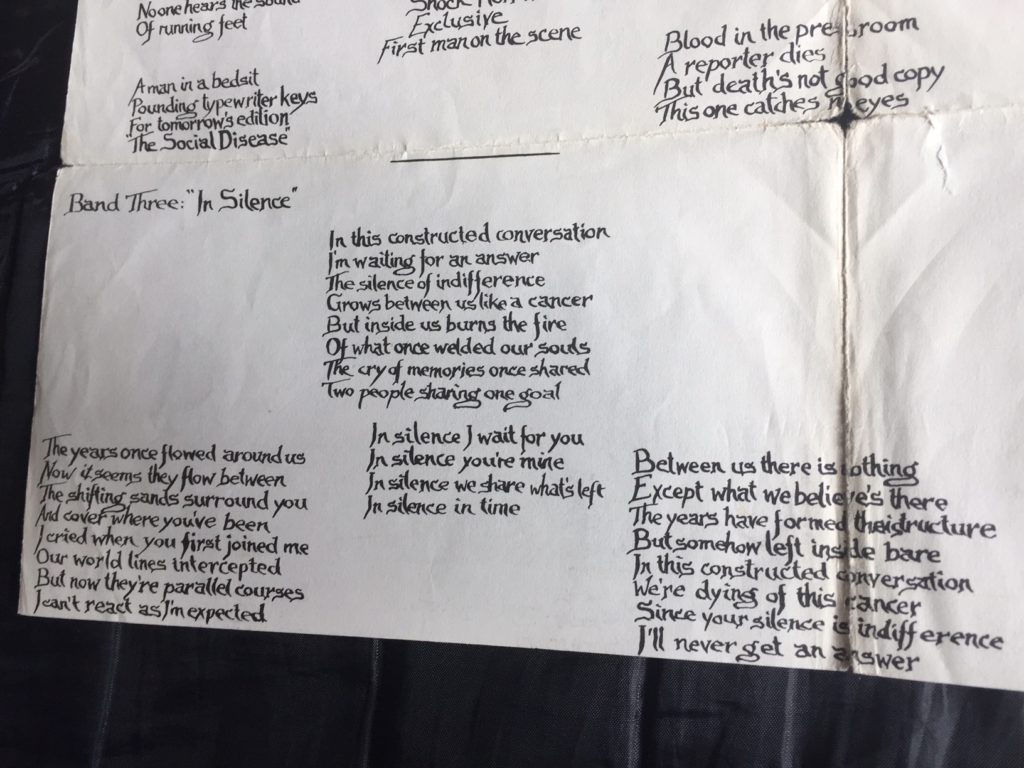 No one hears the sound
Of running feet
A man in a bedsit
Pounding typewriter keys
For tomorrow's edition
"The Social Disease"
Shock
Exclusive
First man on the scene
Blood in the press room
A reporter dies
But death's not good copy
This one catches eyes
Band Three: "In Silence"
In this constructed conversation
I'm waiting for an answer
The silence of indifference
Grows between us like a cancer
But inside us burns the fire
Of what once welded our souls
The cry of memories once shared
Two people sharing one goal
The years once flowed around us
Now it seems they flow between
The shifting sands surround you
And cover where you've been
I cried when you first joined me
Our world lines intercepted
But now they're parallel courses
I can't react as I'm expected
In silence I wait for you
In silence you're mine
In silence we share what's left
In silence in time
Between us there is nothing
Except what we believe's there
The years have formed
But somehow left inside bare
In this constructed conversation
We're dying of this cancer
Since your silence is indifference
I'll never get an answer